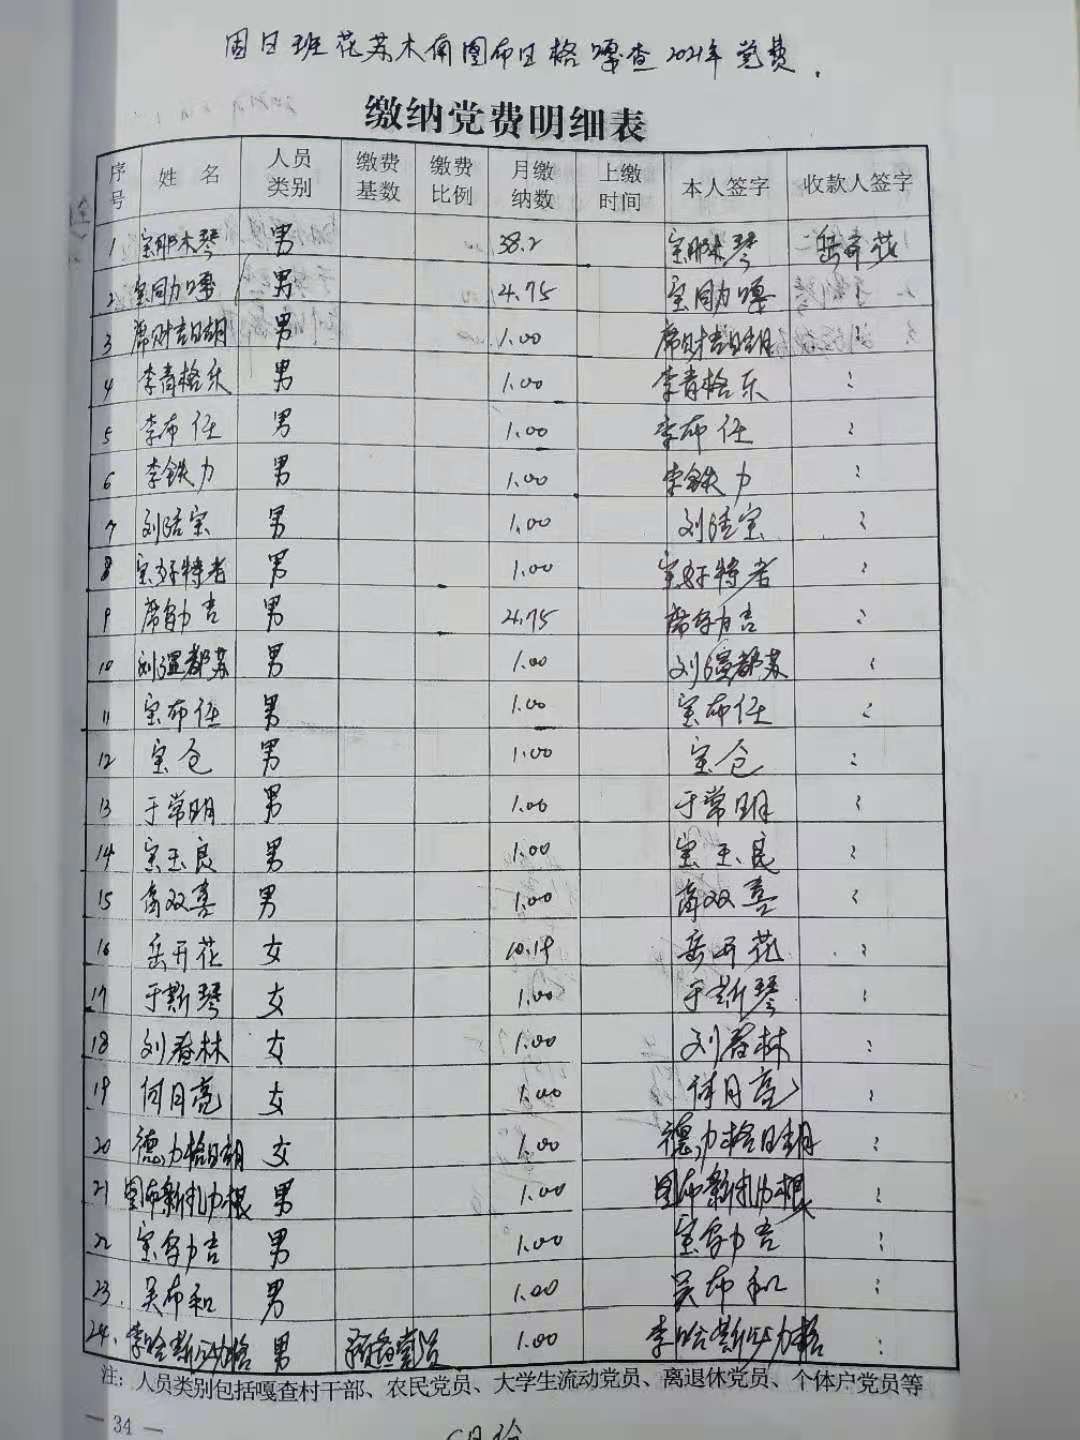 固日班花苏木南图布日格嘎查2021年党费.
缴纳党费明细表
序号 姓 名 人员类别 缴费基数 缴费比例 月缴纳数 上缴时间 本人签字 收款人签字
1 宝那木琴 男 38.2 宝那木琴 岳开花
2 宝同力嘎 男 4.75 宝同力嘎
3 席财吉日胡 男 1.00 席财吉日胡
4 李青格乐 男 1.00 李青格乐 :
5 李布任 男 1.00 李布任 :
6 李铁力 男 1.00 李铁力 :
7 刘宝 男 1.00 刘宝 :
8 宝好特老 男 1.00 宝好特老 :
9 席努力吉 男 4.75 席努力吉 :
10 刘温都苏 男 1.00 刘温都苏 :
11 宝布任 男 1.00 宝布任 :
12 宝仓 男 1.00 宝仓 :
13 于常明 男 1.00 于常明 :
14 宝玉良 男 1.00 宝玉良 :
15 双喜 男 1.00 双喜 :
16 岳开花 女 10.19 岳开花 :
17 于斯琴 女 1.00 于斯琴 :
18 刘春林 女 1.00 刘春林 :
19 何月亮 女 1.00 何月亮 :
20 德力格日胡 女 1.00 德力格日胡 :
21 图布新扎力根 男 1.00 图布新扎力根 :
22 宝努力吉 男 1.00 宝努力吉 :
23. 吴布和 男 1.00 吴布和 :
24. 李哈斯力格 男 预备党员 1.00 李哈斯力格 :
注：人员类别包括嘎查村干部、农民党员、大学生流动党员、离退休党员、个体户党员等
— 34 —